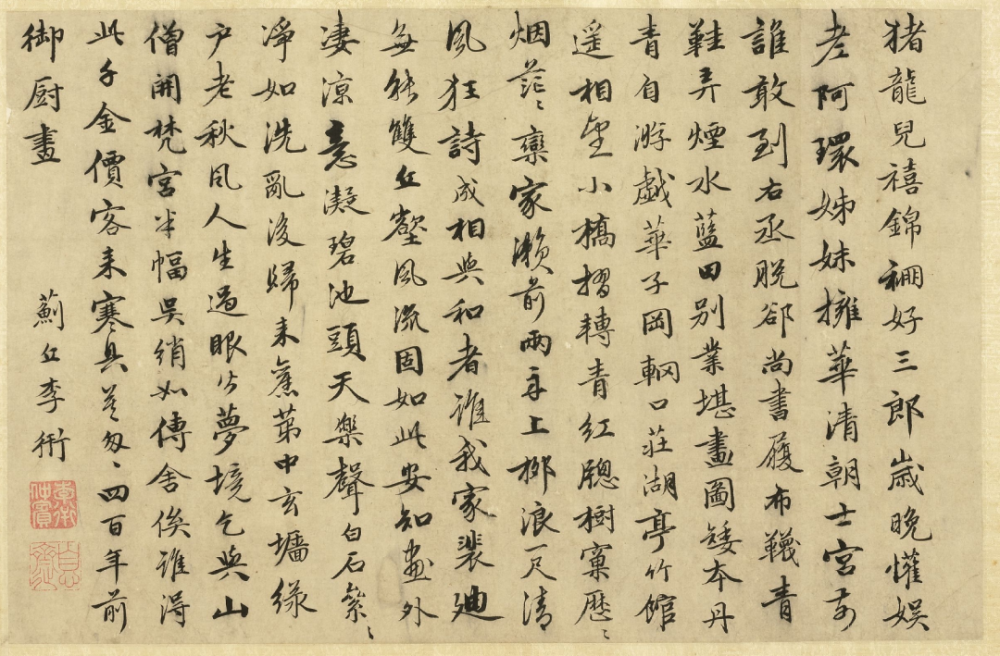 猪龍兒禧錦裯好三郎歲晚懽娛
老阿環姊妹擁華清朝士宮前
誰敢到右丞脫郤尚書履布韈青
鞋弄煙水藍田別業堪畫圖矮本丹
青自游戲華子岡輞口莊湖亭竹館
遥相望小橋摺轉青紅騘樹窠歷〻
烟茫〻欒家瀨前雨舟上柳浪一尺清
風狂詩成相與和者誰我家裴迪
無能雙丘壑風流固如此安知畫外
淒涼意凝碧池頭天樂聲白石粼〻
淨如洗亂後歸来舊第中玄壇緣
户老秋風人生過眼皆夢境乞與山
僧開梵宮半幅吳綃如傳舍俟誰得
此千金價客来寒具莫匆〻四百年前
御厨畫
薊丘李衎
李衎仲賓
息齋